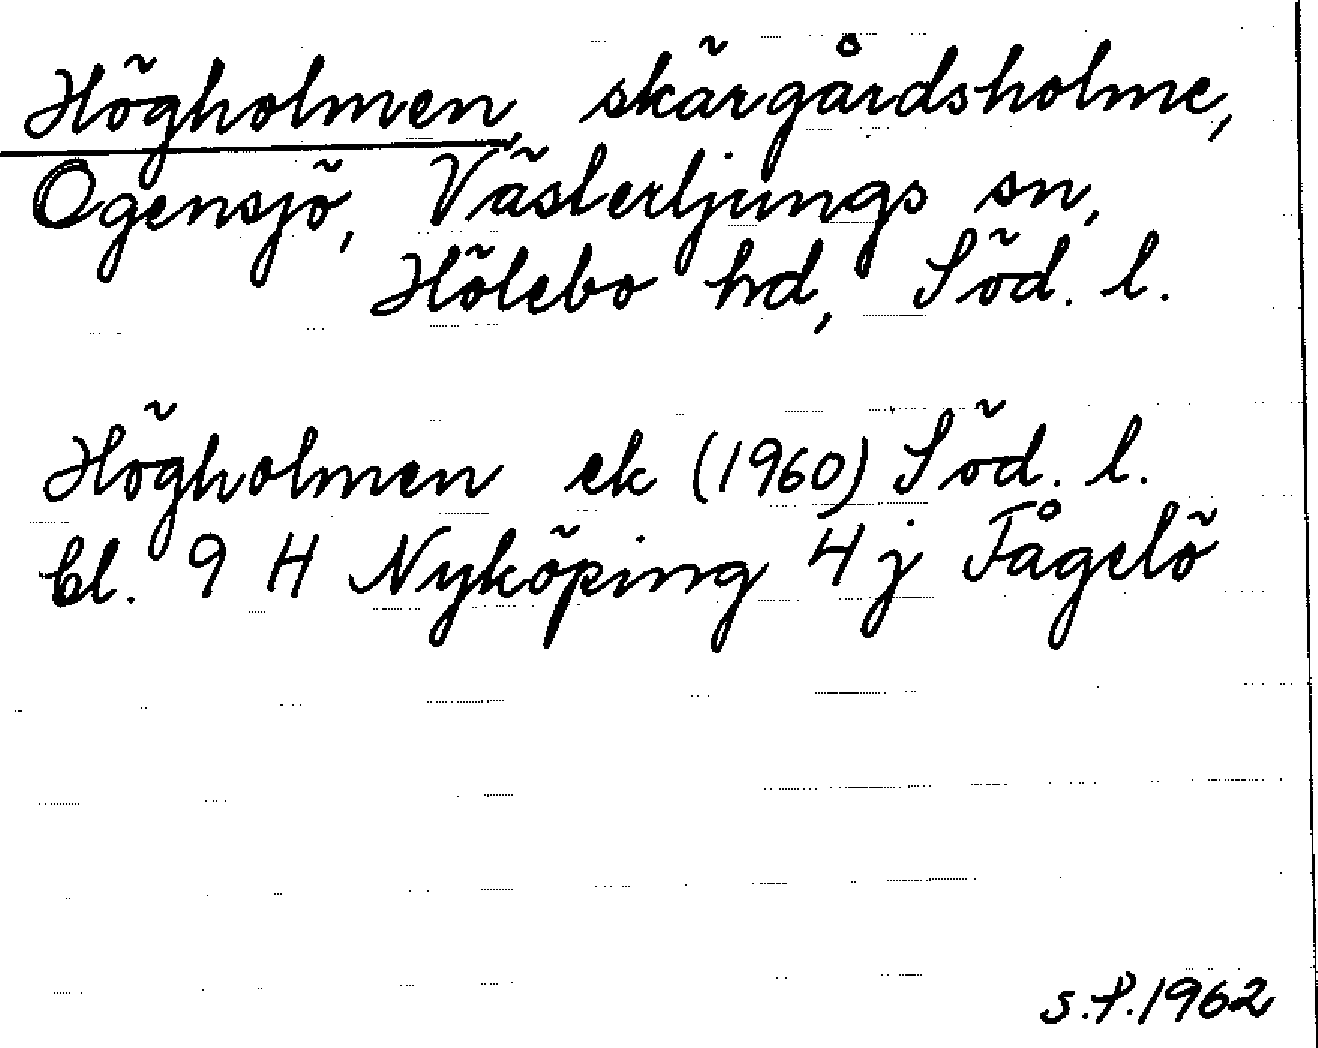 Högholmen, skärgårdsholme,
Ogensjö, Västerljungs sn,
Hölebo hd, Söd. l.
Högholmen ek (1960) Söd. l.
bl. 9 H Nyköping 4 j Fågelö
S.P. 1962